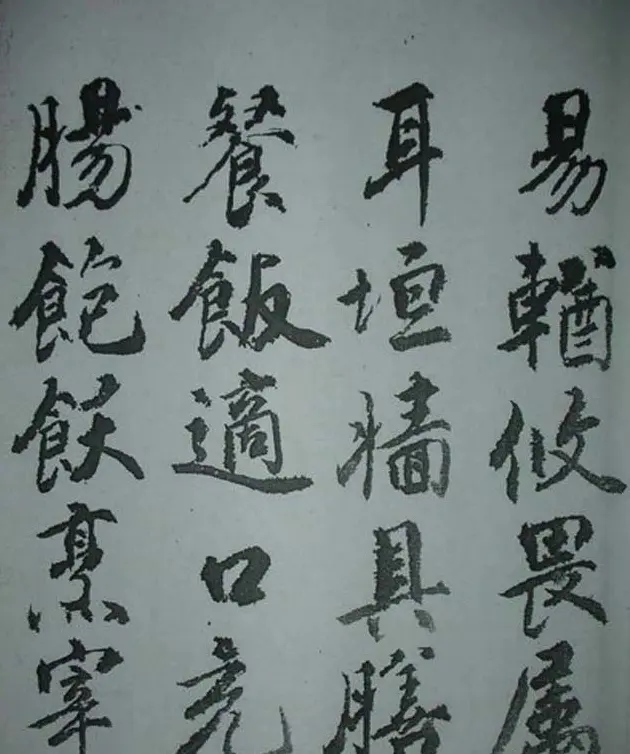 易輶攸畏属
耳垣墙具膳
餐飯適口充
腸飽飫烹宰